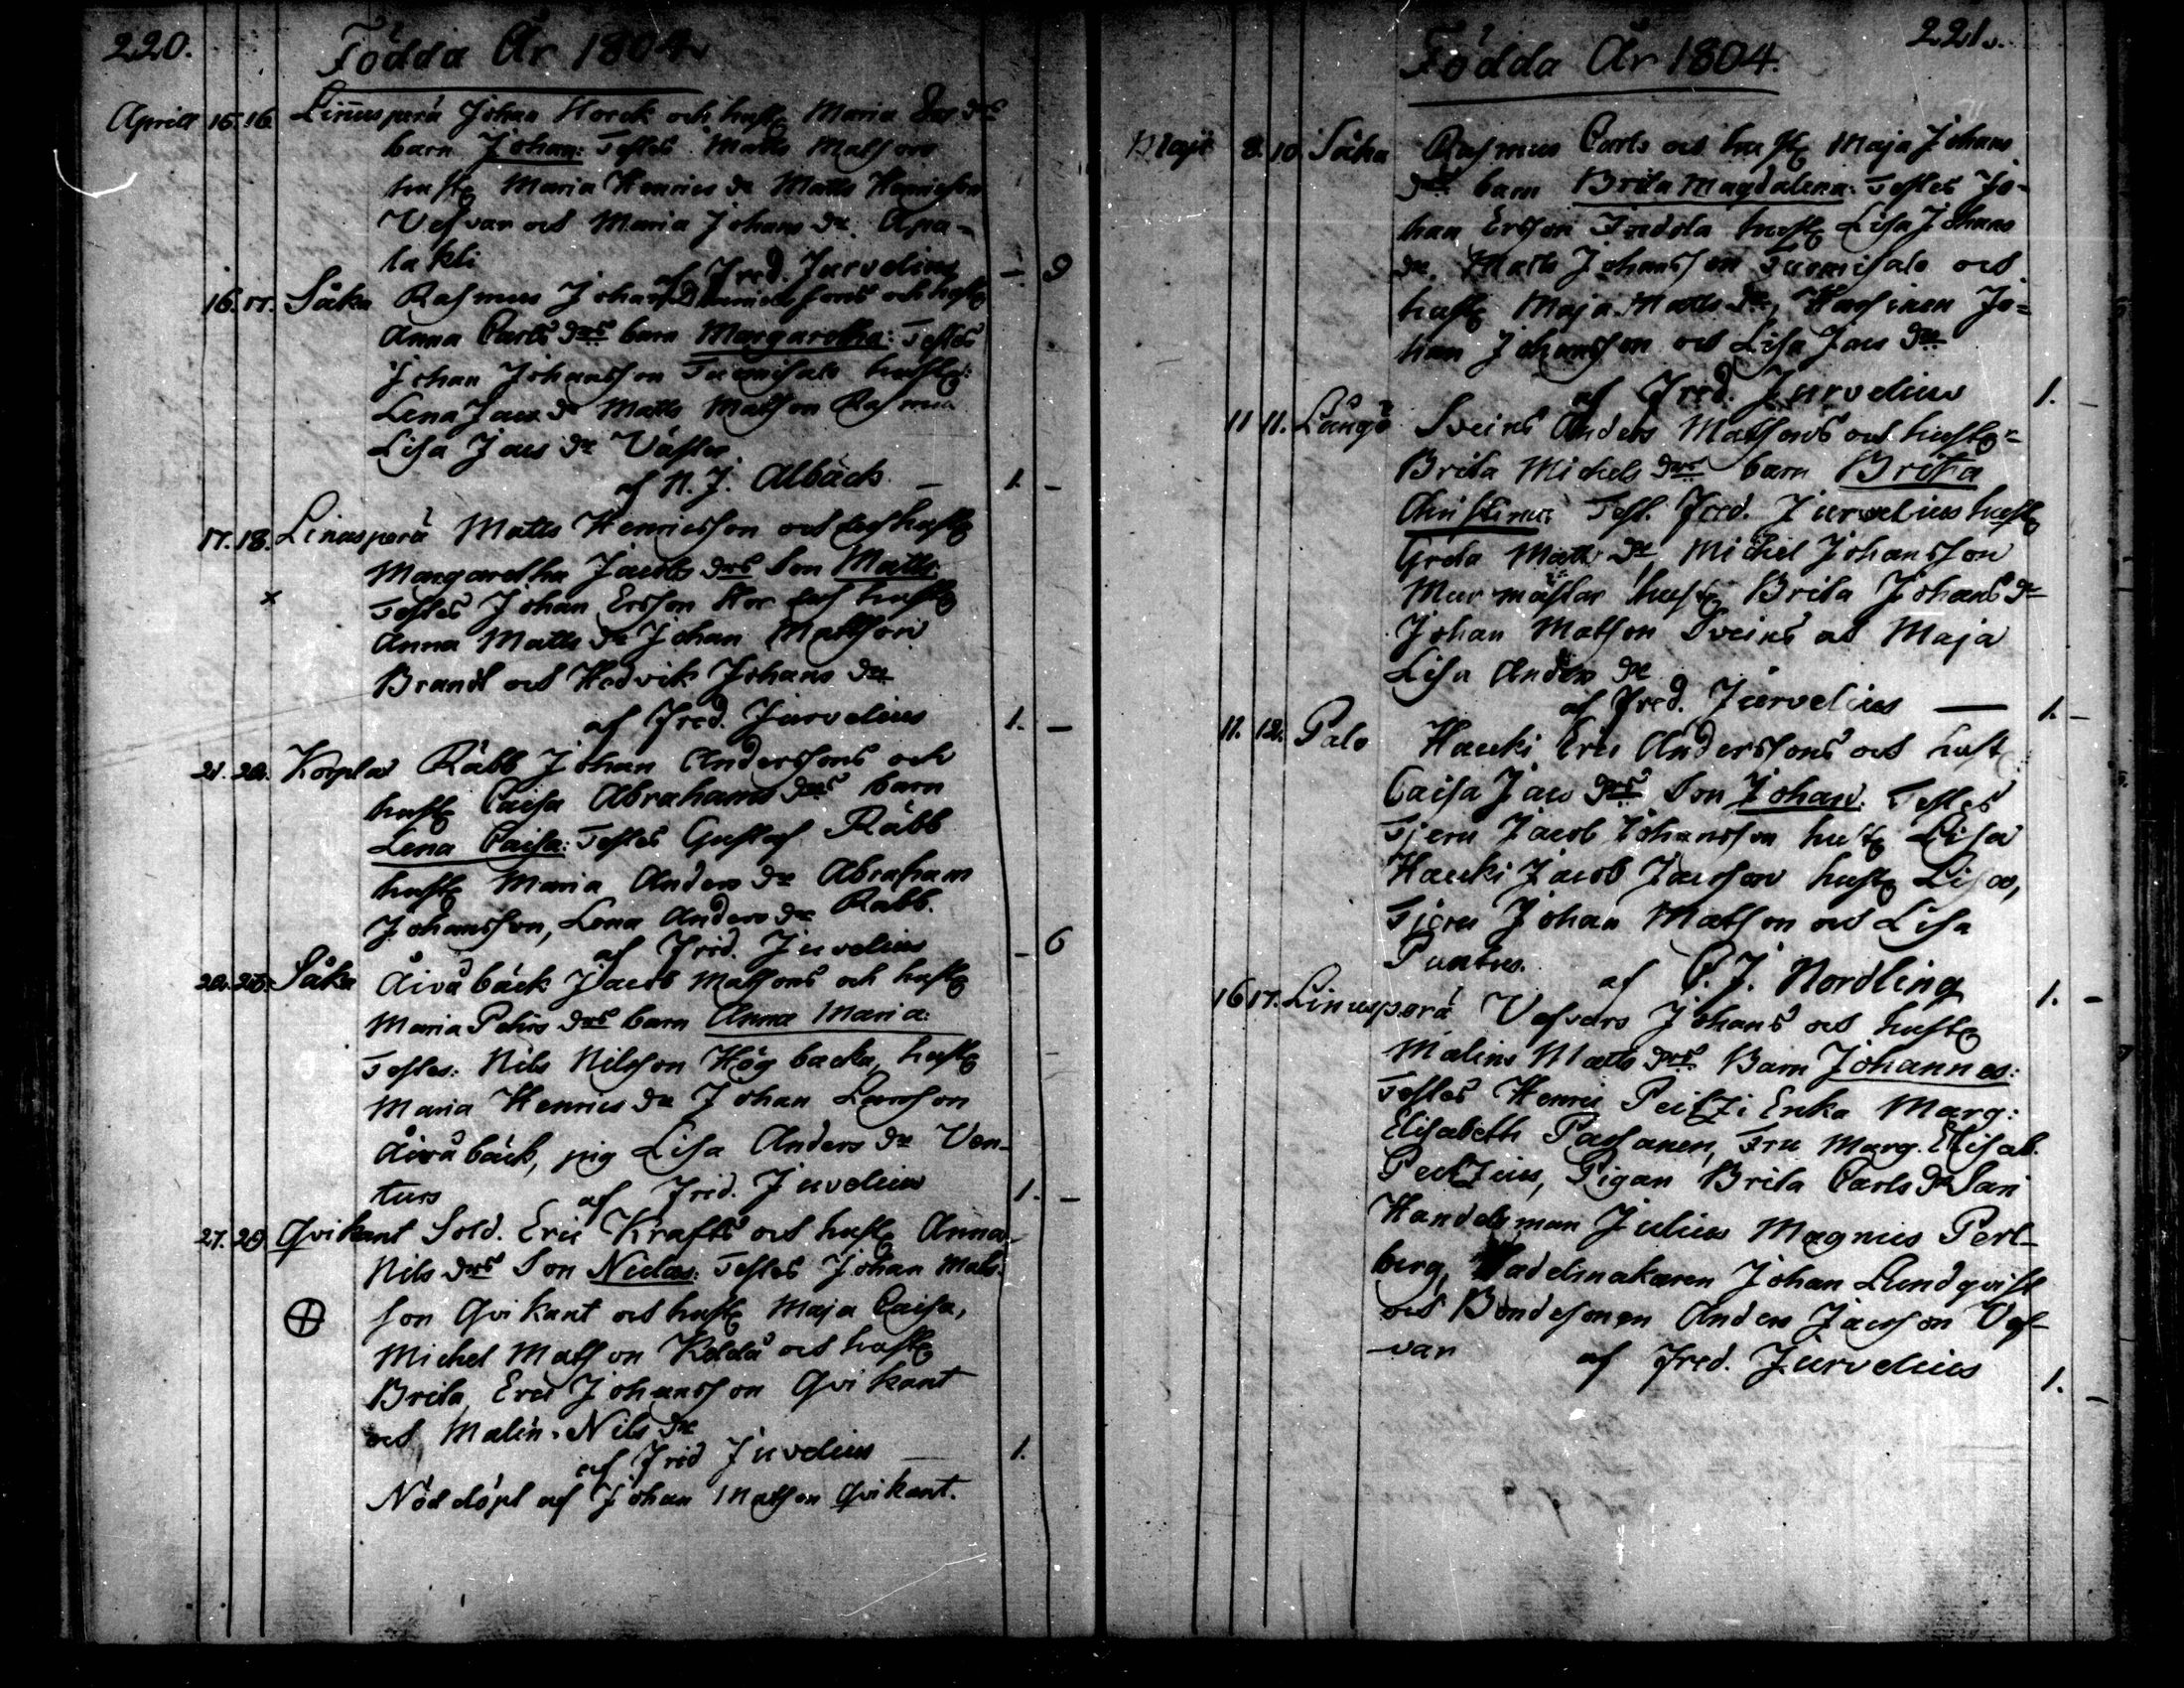 220.
Födda År 1804
Aprill 15. 16. Linusperä Johan Storck och hust: Maria drs
barn Johan: Testes Matts Matsson
hust: Maria Henrics dr Matts Henricsson
Vesvar och Maria Johans dr Apa-
lakti
af Fred. Jurvelius — 9
16. 17. Såka Rasmus Johan Henricssons och hust:
Anna Carls drs barn Margaretha: Testes
Johan Johansson Tuomisalo hust:
Lena Jacs dr Matts Matsson Rasmus
Lisa Jacs dr Väster
af N. J. Alback — 1. —
17. 18. Linusperä Matts Henricsson och hust:
Margaretha Jacobs drs Son Matts:
x Testes Johan Ersson Stor hust:
Anna Matts dr Johan Mattsson
Brandt och Hedvik Johans dr
af Fred. Jurvelius 1. —
21. 22. Korpla Räbb Johan Anderssons och
hust: Caisa Abrahams drs barn
Lena Caisa: Testes Gustaf Räbb
hust: Maria Anders dr Abraham
Johansson, Lena Anders dr Rabb.
af Frid. Juvelius — 6
22. 23. Såka Åivåbäck Jacob Matsons och hust:
Maria Pehrs drs barn Anna Maria:
Testes: Nils Nilsson Högbacka, hust:
Maria Henrics dr Johan Larsson
Åivåbäck, pig Lisa Anders dr Ven-
tus af Frid. Juvelius 1. —
27. 29 Qvikant Sold. Eric Krafts och hust: Anna
Nils drs Son Niclas: Testes Johan Mats-
son Qvikant och hust: Maja Caisa,
Michel Matsson Keldå och hust:
Brita, Eric Johansson Qvikant
och Malin Nils dr
af Frid Juvelius — 1.
Nöddöpt af Johan Matson Qvikant.
221.
Födda År 1804.
Maji 8. 10 Såka Rasmus Carls och hust: Maja Johans
drs barn Brita Magdalena: Testes Jo-
han Ersson Indola hust: Lisa Johans
dr. Matts Johansson Tuomisalo och
hust: Maja Matts dr, Hassinen Jo=
han Johansson och Lisa Jacs dr
af Fred. Jurvelius 1. —
11 11. Långö Sveins Anders Matssons och hust:
Brita Michels drs barn Brita
Christina: Test. Fred. Jurvelius hust:
Greta Matts dr, Michel Johansson
Murmästar hust: Brita Johans dr
Johan Matson Sveins och Maja
Lisa Anders dr
af Fred. Jurvelius — 1. —
11. 12. Palo Hauki Eric Anderssons och hust:
Caisa Jacs drs Son Johan: Testes
Tjeru Jacob Johansson hust: Lisa
Hauki Jacob Jacsson hust: Lisa,
Tjeru Johan Matson och Lisa
Puntus.
af C. J. Nordling 1. —
16 17. Linusperä Vesvars Johans och hust:
Malins Matts drs Barn Johannes:
Testes Henric Peitzi Enka Marg:
Elisabeth Passanen, Fru Marg. Elisab.
Peitzius, Pigan Brita Carls dr Sari
Handelsman Julius Magnus Perl-
berg, Sadelmakaren Johan Lundqvist
och Bondesonen Anders Jacsson Ves-
var af Fred. Jurvelius
1. —